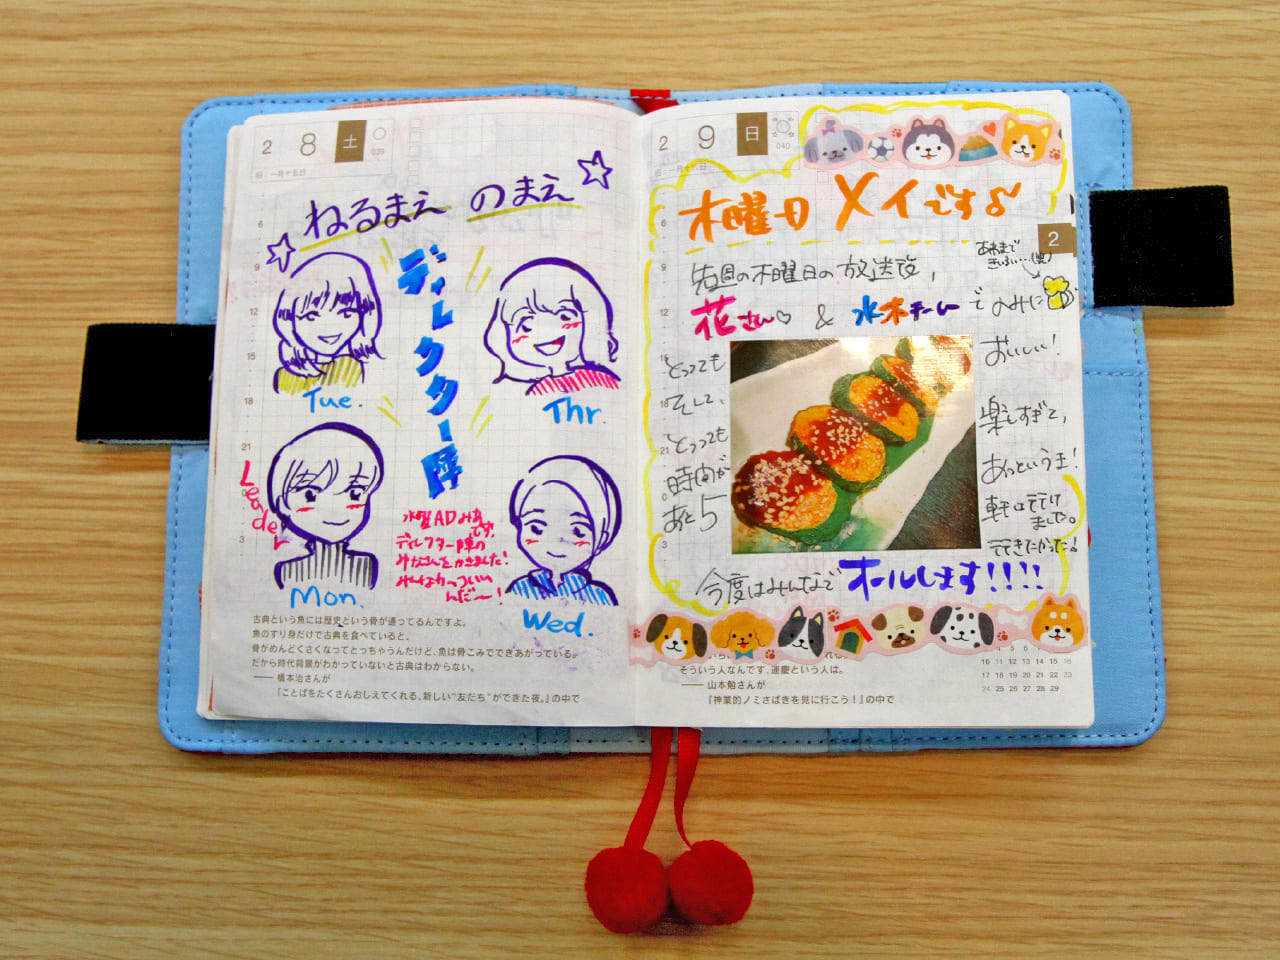 2 8 土
039
旧 一月十五日
ねるまえ のまえ
ディレクター陣
Tue.
Thr.
Leader
Mon.
Wed.
水曜ADみあ
です。
ディレクター陣の
みなさんをかきました!
みんなかっこいい
んだ〜!
6
9
12
15
18
21
0
3
古典という魚には歴史という骨が通ってるんですよ。
魚のすり身だけで古典を食べていると、
骨がめんどくさくなってとっちゃうんだけど、魚は骨こみでできあがっている。
だから時代背景がわかっていないと古典はわからない。
—— 橋本治さんが
『ことばをたくさんおしえてくれる、新しい“友だち”ができた夜。』の中で
2 9 日
040
木曜日 メイです♪
2
先週の木曜日の放送後、
花さん♡ & 水木チーム でのみに
とっても
そして、
とっても
時間が
あと5
おいしい!
楽しすぎて、
あっというま!
6
9
12
15
18
21
0
3
今度はみんなで オールします!!!!
そういう人なんです、運慶という人は。
—— 山本勉さんが
『神業的ノミさばきを見に行こう!』の中で
10 11 12 13 14 15 16
17 18 19 20 21 22 23
24 25 26 27 28 29